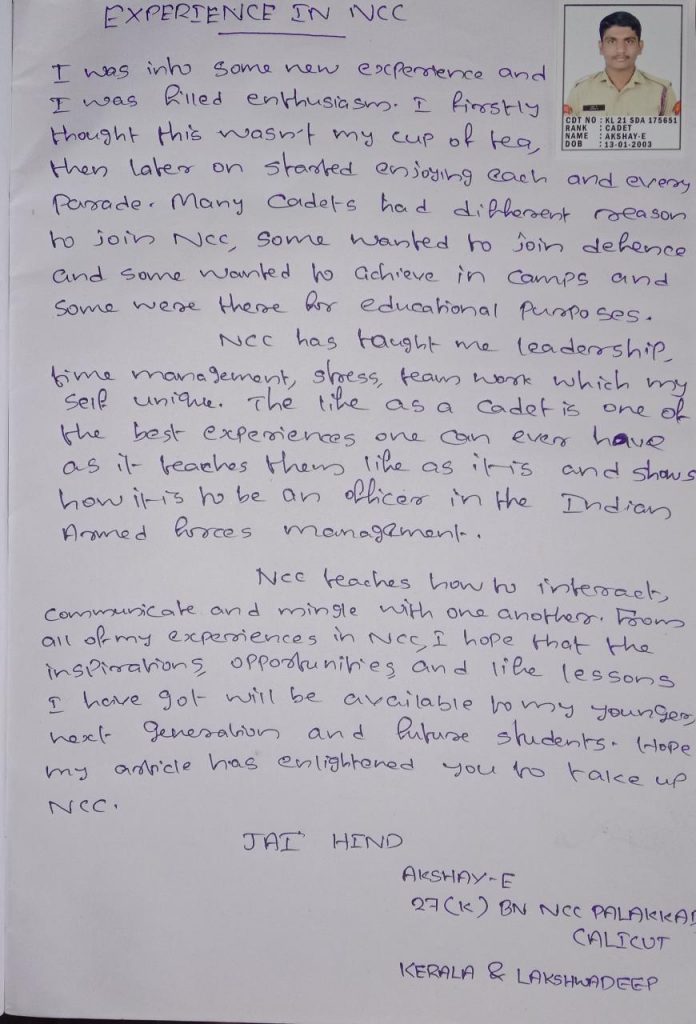 EXPERIENCE IN NCC
CDT NO : KL 21 SDA 175651
RANK : CADET
NAME : AKSHAY-E
DOB : 13-01-2003
I was into some new experience and
I was filled enthusiasm. I firstly
thought this wasn't my cup of tea,
then later on started enjoying each and every
parade. Many Cadets had different reason
to join NCC, some wanted to join defence
and some wanted to achieve in camps and
some were there for educational purposes.
NCC has taught me leadership,
time management, stress, team work which my
self unique. The life as a cadet is one of
the best experiences one can ever have
as it teaches them life as it is and shows
how it is to be an officer in the Indian
Armed forces management.
NCC teaches how to interract,
communicate and mingle with one another. From
all of my experiences in NCC, I hope that the
inspirations, opportunities and life lessons
I have got will be available to my younger,
next generation and future students. Hope
my article has enlightened you to take up
NCC.
JAI HIND
AKSHAY-E
27(K) BN NCC PALAKKAD
CALICUT
KERALA & LAKSHWADEEP